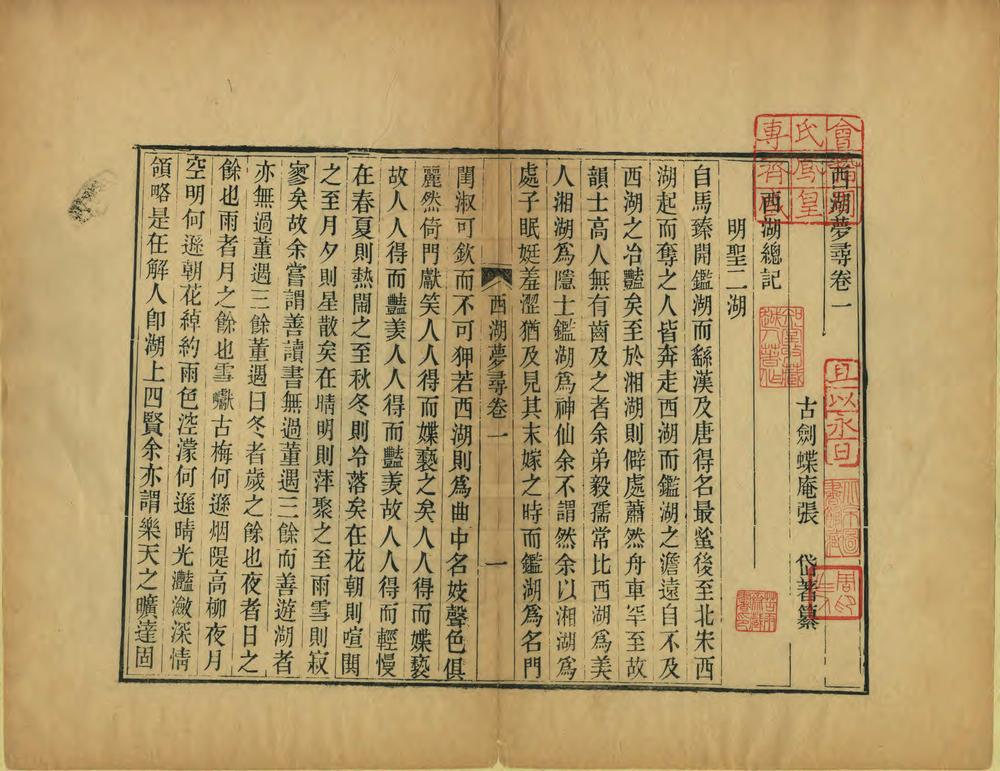 西湖夢尋卷一
古劍蝶庵張 岱著纂
西湖總記
明聖二湖
自馬臻開鑑湖而繇漢及唐得名最蚤後至北宋西
湖起而奪之人皆奔走西湖而鑑湖之澹遠自不及
西湖之冶豔矣至於湘湖則僻處蕭然舟車罕至故
韻士高人無有齒及之者余弟毅孺常比西湖為美
人湘湖為隱士鑑湖為神仙余不謂然余以湘湖為
處子眠娗羞澀猶及見其未嫁之時而鑑湖為名門
西湖夢尋卷一 一
閨淑可欽而不可狎若西湖則為曲中名妓聲色俱
麗然倚門獻笑人人得而媟褻之矣人人得而媟褻
故人人得而豔羨人人得而豔羨故人人得而輕慢
在春夏則熱鬧之至秋冬則冷落矣在花朝則喧鬨
之至月夕則星散矣在晴明則萍聚之至雨雪則寂
寥矣故余嘗謂善讀書無過董遇三餘而善遊湖者
亦無過董遇三餘董遇曰冬者歲之餘也夜者日之
餘也雨者月之餘也雪巘古梅何遜烟隄高柳夜月
空明何遜朝花綽約雨色涳濛何遜晴光灩瀲深情
領略是在解人卽湖上四賢余亦謂樂天之曠達固
且以永日